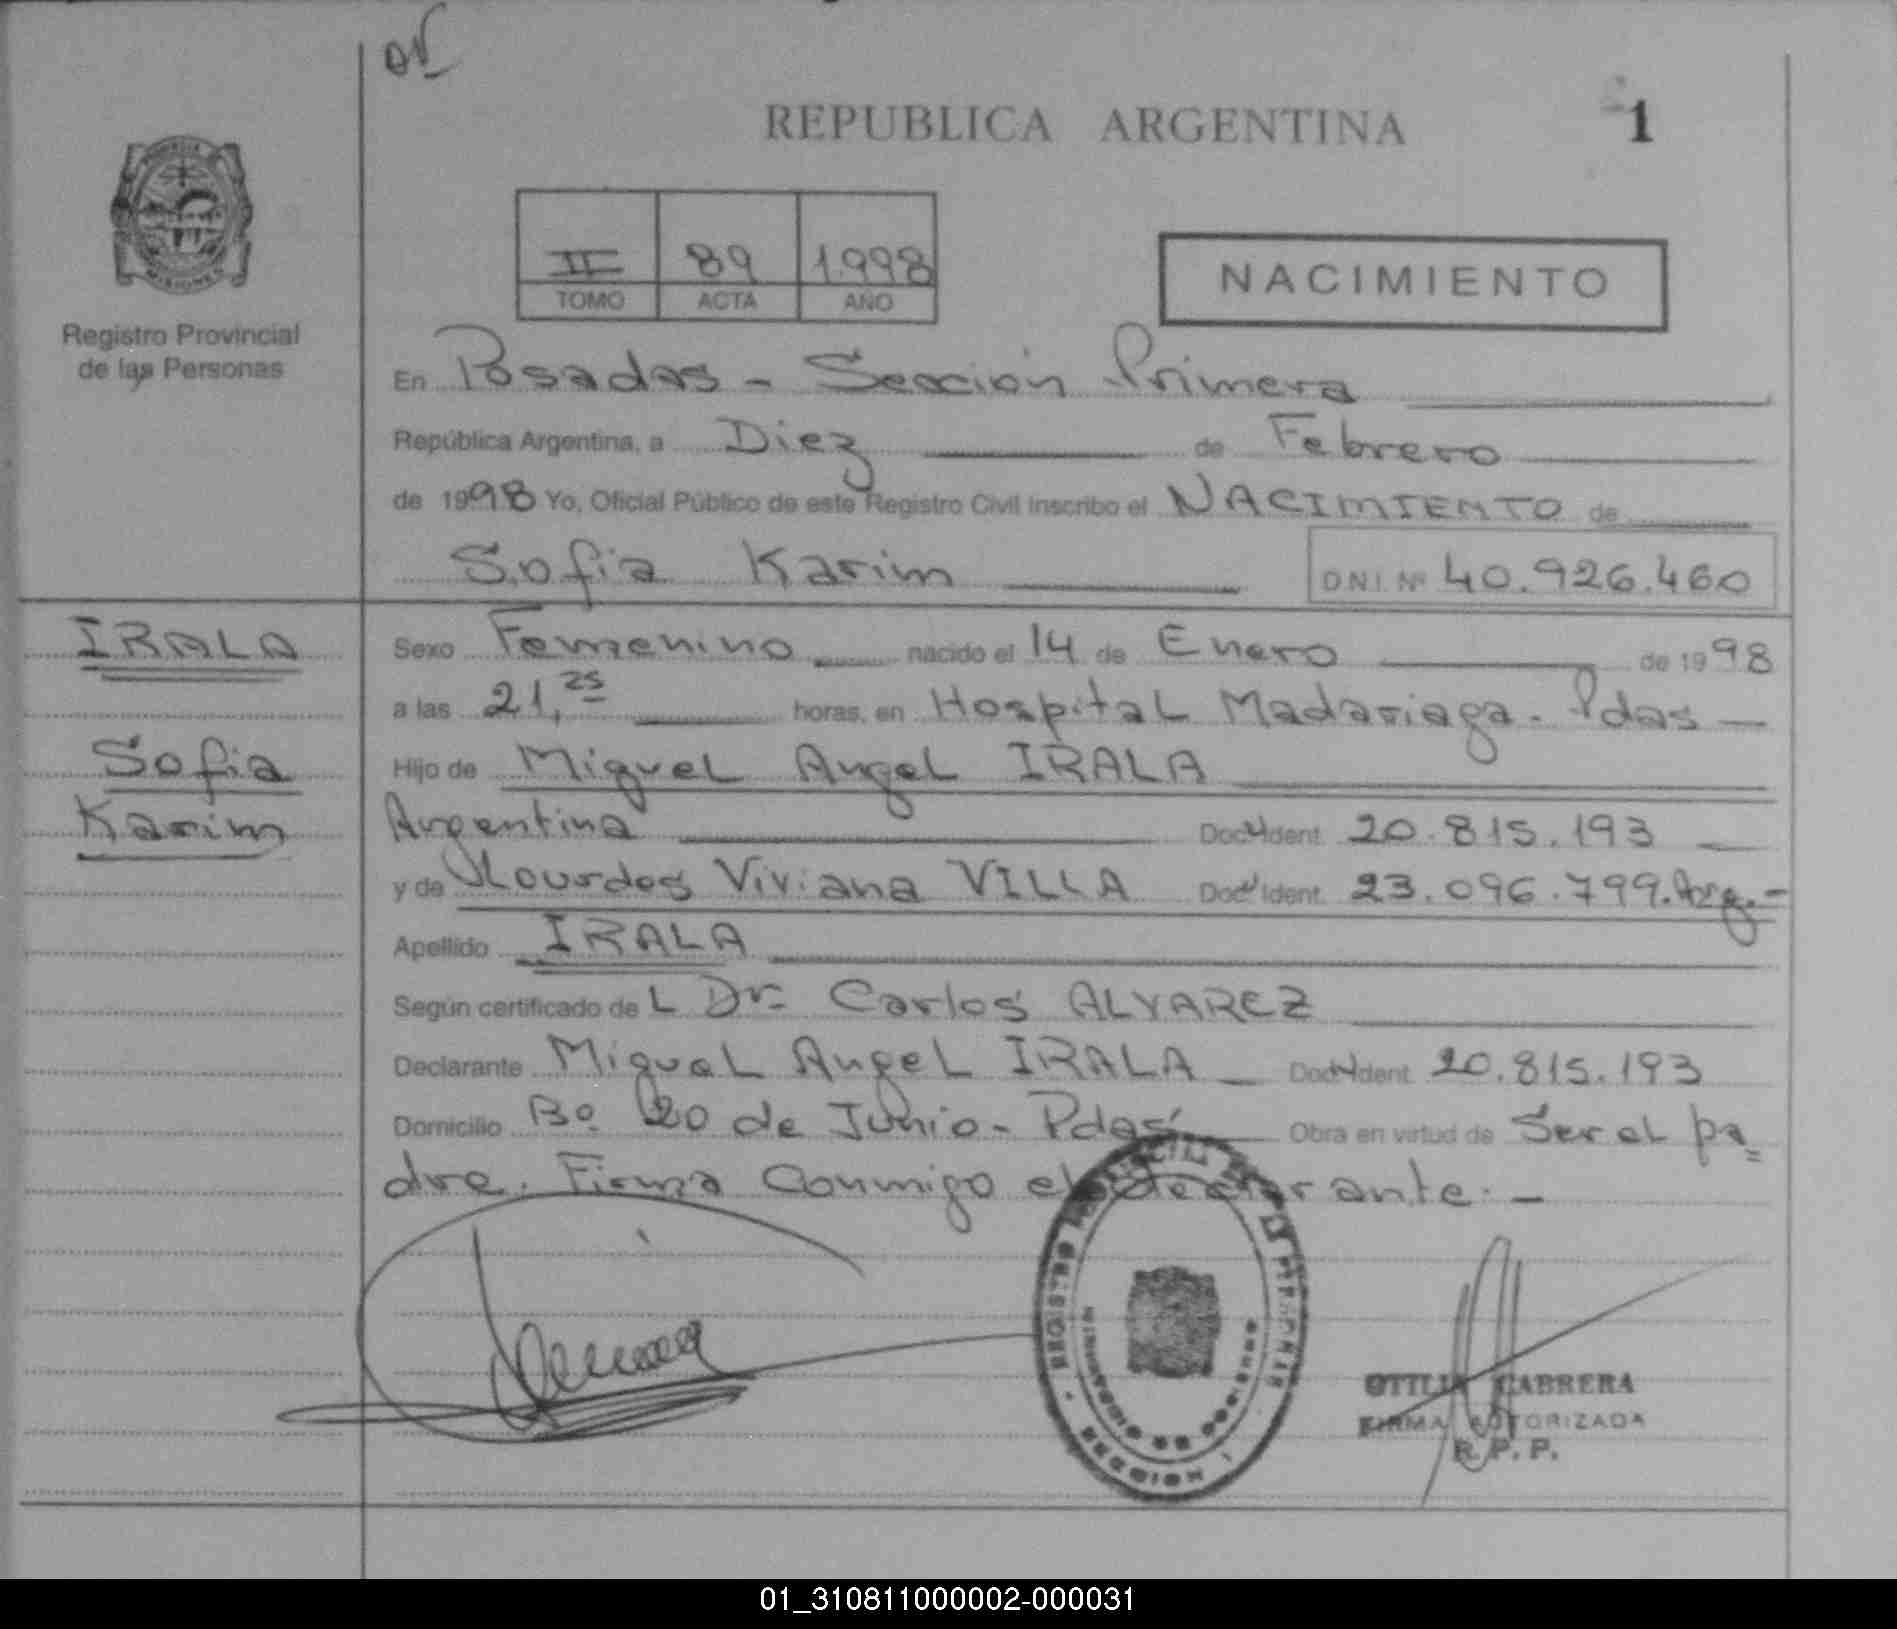 REPUBLICA ARGENTINA
1
II 89 1998
TOMO ACTA AÑO
NACIMIENTO
Registro Provincial
de las Personas
En Posadas - Sección Primera
República Argentina, a Diez de Febrero
de 1998 Yo, Oficial Público de este Registro Civil inscribo el NACIMIENTO de
Sofia Karim D.N.I. Nº 40.926.460
IRALA
Sofia
Karim
Sexo Femenino nacido el 14 de Enero de 1998
a las 21,25 horas, en Hospital Madariaga. Pdas
Hijo de Miguel Angel IRALA
Argentina Doc. Ident. 20.815.193
y de Lourdes Viviana VILLA Doc. Ident. 23.096.799. Arg.-
Apellido IRALA
Según certificado de L Dr. Carlos ALVAREZ
Declarante Miguel Angel IRALA Doc. Ident. 20.815.193
Domicilio Bº 20 de Junio - Pdas Obra en virtud de Ser el pa=
dre. Firma Conmigo el declarante.-
OTTILIA CABRERA
FIRMA AUTORIZADA
R.P.P.
01_310811000002-000031